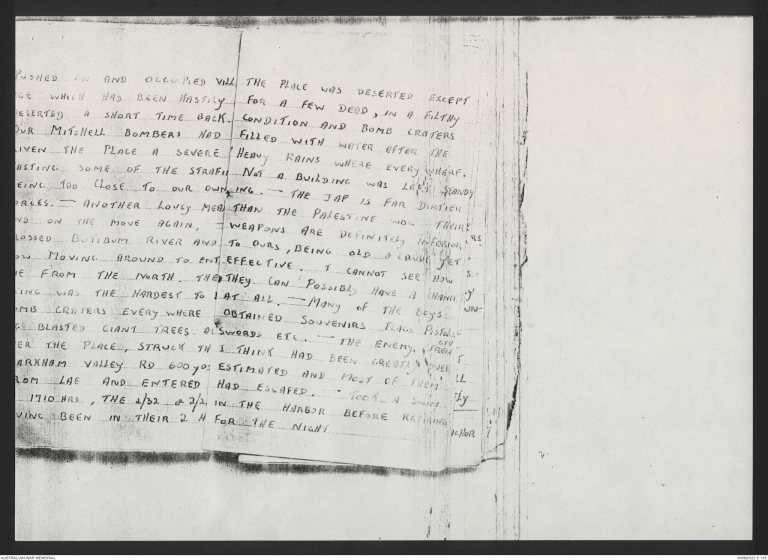 PUSHED ON AND OCCUPIED VILL
GE WHICH HAD BEEN HASTILY
ESERTED A SHORT TIME BACK.
OUR MITCHELL BOMBERS HAD
IVEN THE PLACE A SEVERE
ASTING SOME OF THE STRAFI
EING TOO CLOSE TO OUR OWN
ORCES. — ANOTHER LOUSY MEA
ND ON THE MOVE AGAIN,
ROSSED BUTIBUM RIVER AND
OW MOVING AROUND TO ENT
E FROM THE NORTH. THE
ING WAS THE HARDEST TO
OMB CRATERS EVERYWHERE
G BLASTED GIANT TREES A
ER THE PLACE, STRUCK TH
ARKHAM VALLEY RD 600 YDS
ROM LAE AND ENTERED
1710 HRS, THE 2/32 & 2/2
VING BEEN IN THEIR 2 H
THE PLACE WAS DESERTED EXCEPT
FOR A FEW DEAD, IN A FILTHY
CONDITION AND BOMB CRATERS
FILLED WITH WATER AFTER THE
HEAVY RAINS WHERE EVERYWHERE.
NOT A BUILDING WAS LEFT STANDY
ING. — THE JAP IS FAR DIRTIER
THAN THE PALESTINE WOG THEIR
WEAPONS ARE DEFINITELY INFERIOR
TO OURS, BEING OLD & CRUDE YET
EFFECTIVE. I CANNOT SEE HOW
THEY CAN POSSIBLY HAVE A CHANCE
AT ALL. — MANY OF THE BOYS
OBTAINED SOUVENIRS FLAGS PISTOLS
SWORDS ETC. — THE ENEMY
I THINK HAD BEEN GREATLY OVER
ESTIMATED AND MOST OF THEM
HAD ESCAPED. — TOOK A SWIM
IN THE HARBOR BEFORE RETIRING
FOR THE NIGHT
AUSTRALIAN WAR MEMORIAL